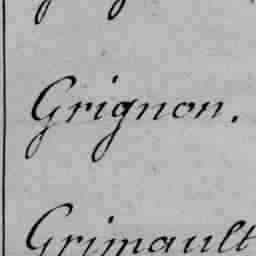 Grignon.
Grimault